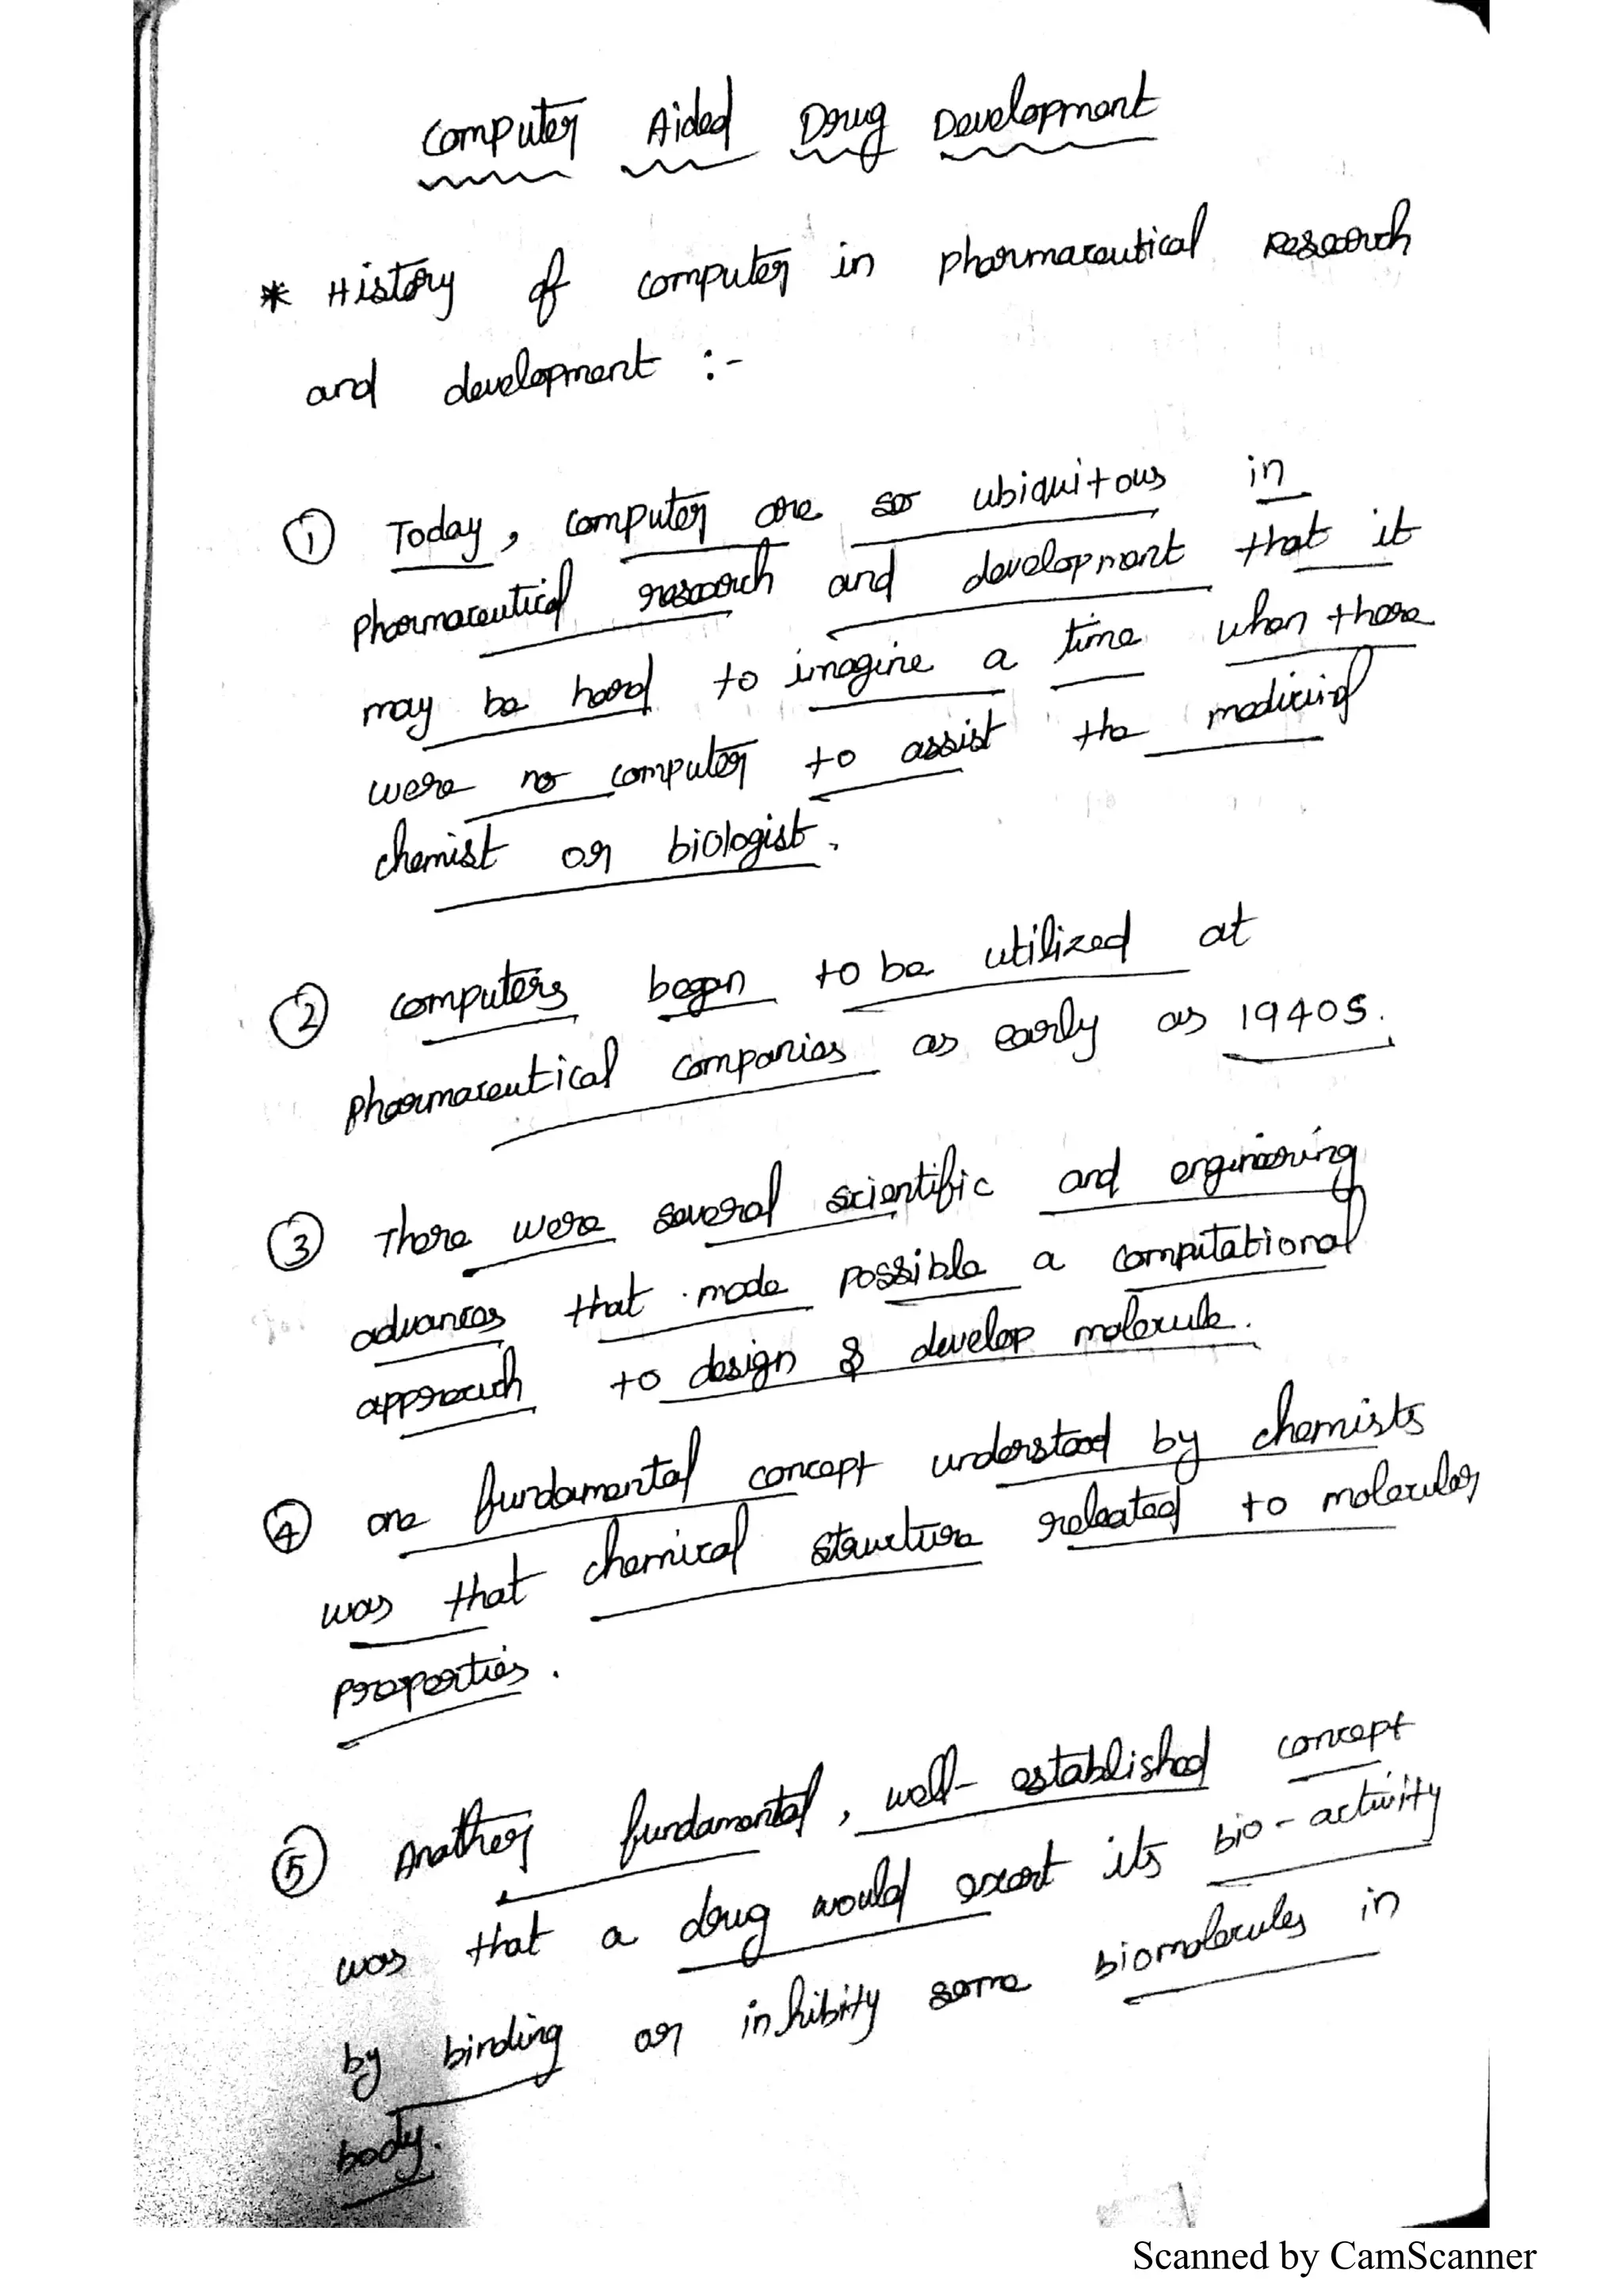 Computer Aided Drug Development
* History of computer in pharmaceutical Research
and development :-
① Today, computer are so ubiquitous in
pharmaceutical research and development that it
may be hard to imagine a time when there
were no computer to assist the medicinal
chemist or biologist.
② computers began to be utilized at
pharmaceutical companies as early as 1940s.
③ There were several scientific and engineering
advances that made possible a computational
approach to design & develop molecule.
④ one fundamental concept understood by chemists
was that chemical structure releated to molecular
properties.
⑤ Another fundamental, well-established concept
was that a drug would exert its bio-activity
by binding or inhibity some biomolecules in
body.
Scanned by CamScanner